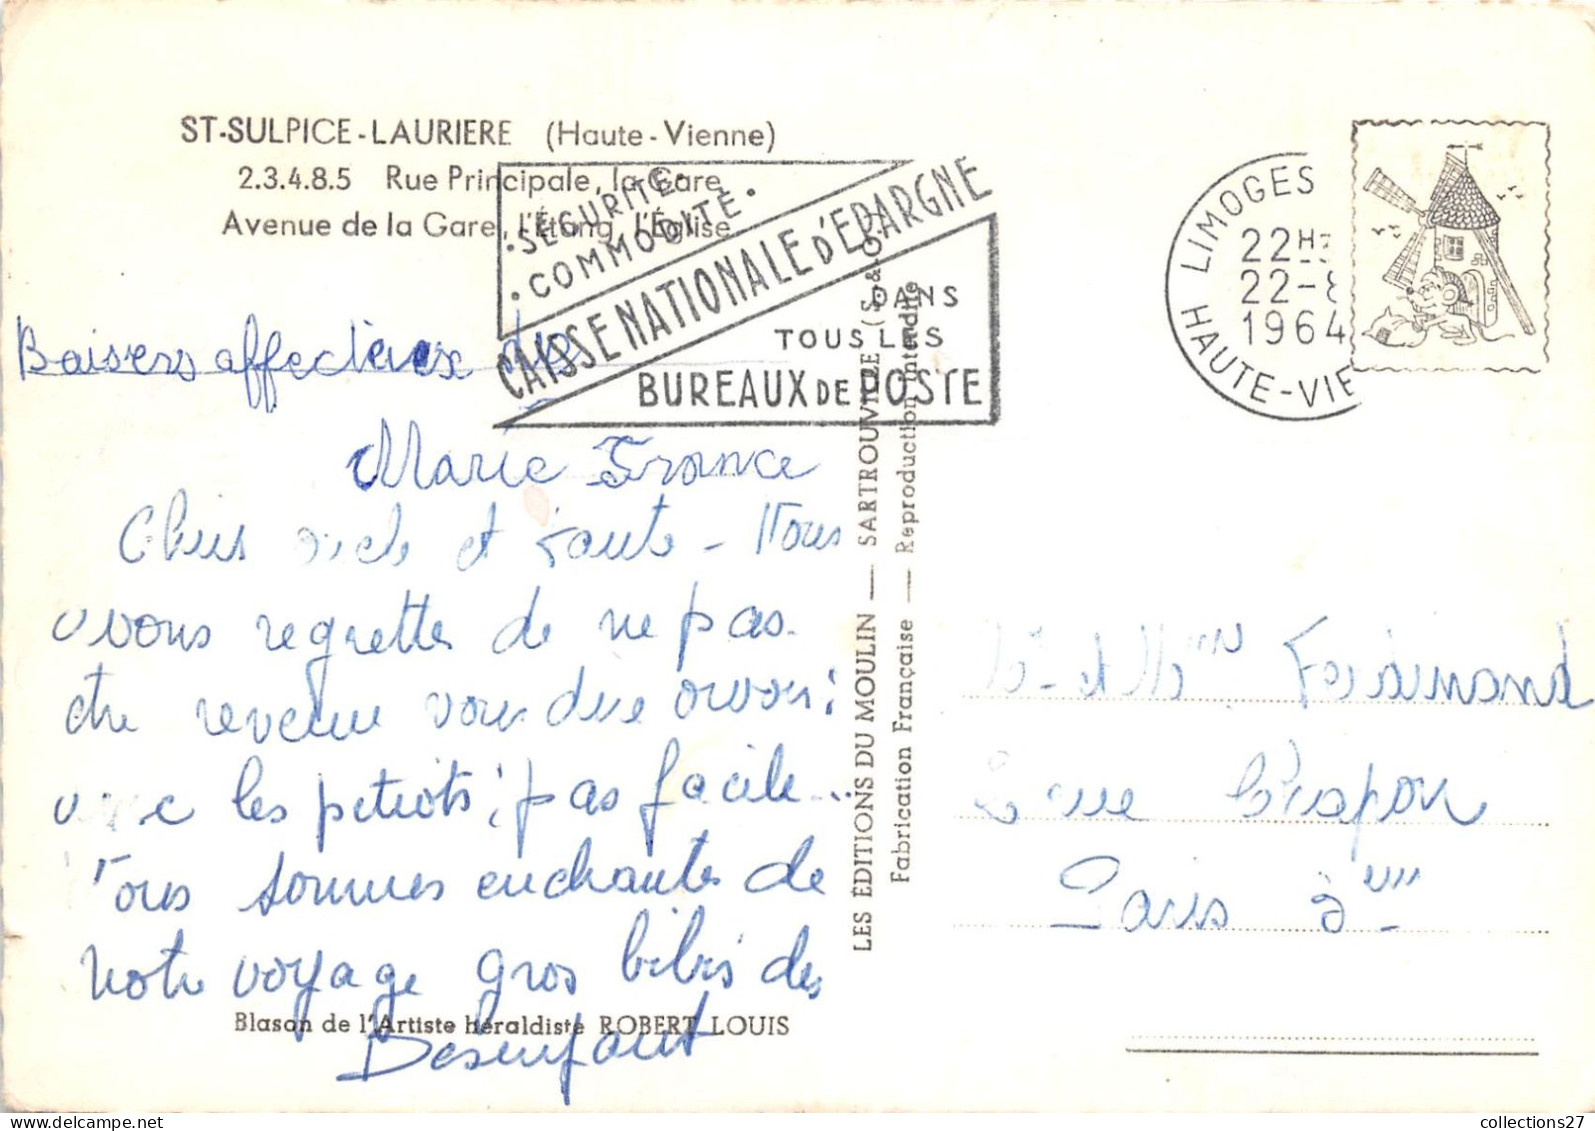 ST-SULPICE-LAURIERE (Haute-Vienne)
2.3.4.8.5 Rue Principale, la Gare
Avenue de la Gare, l'Étang, l'Église
• SÉCURITÉ •
• COMMODITÉ •
CAISSE NATIONALE D'EPARGNE
DANS
TOUS LES
BUREAUX DE POSTE
LIMOGES
22H
22-8
1964
HAUTE-VIE
Baisers affectueux de
Marie France
Chers oncle et tante - Nous
vous regrettes de ne pas
être revenue vous dire
avec les petiots, pas facile...
Nous sommes enchantés de
notre voyage gros bibis des
Desenfant
Blason de l'Artiste héraldiste ROBERT LOUIS
LES ÉDITIONS DU MOULIN — SARTROUVILLE (S.&O.)
Fabrication Française — Reproduction interdite
et Ferdinand
rue
Paris
collections27